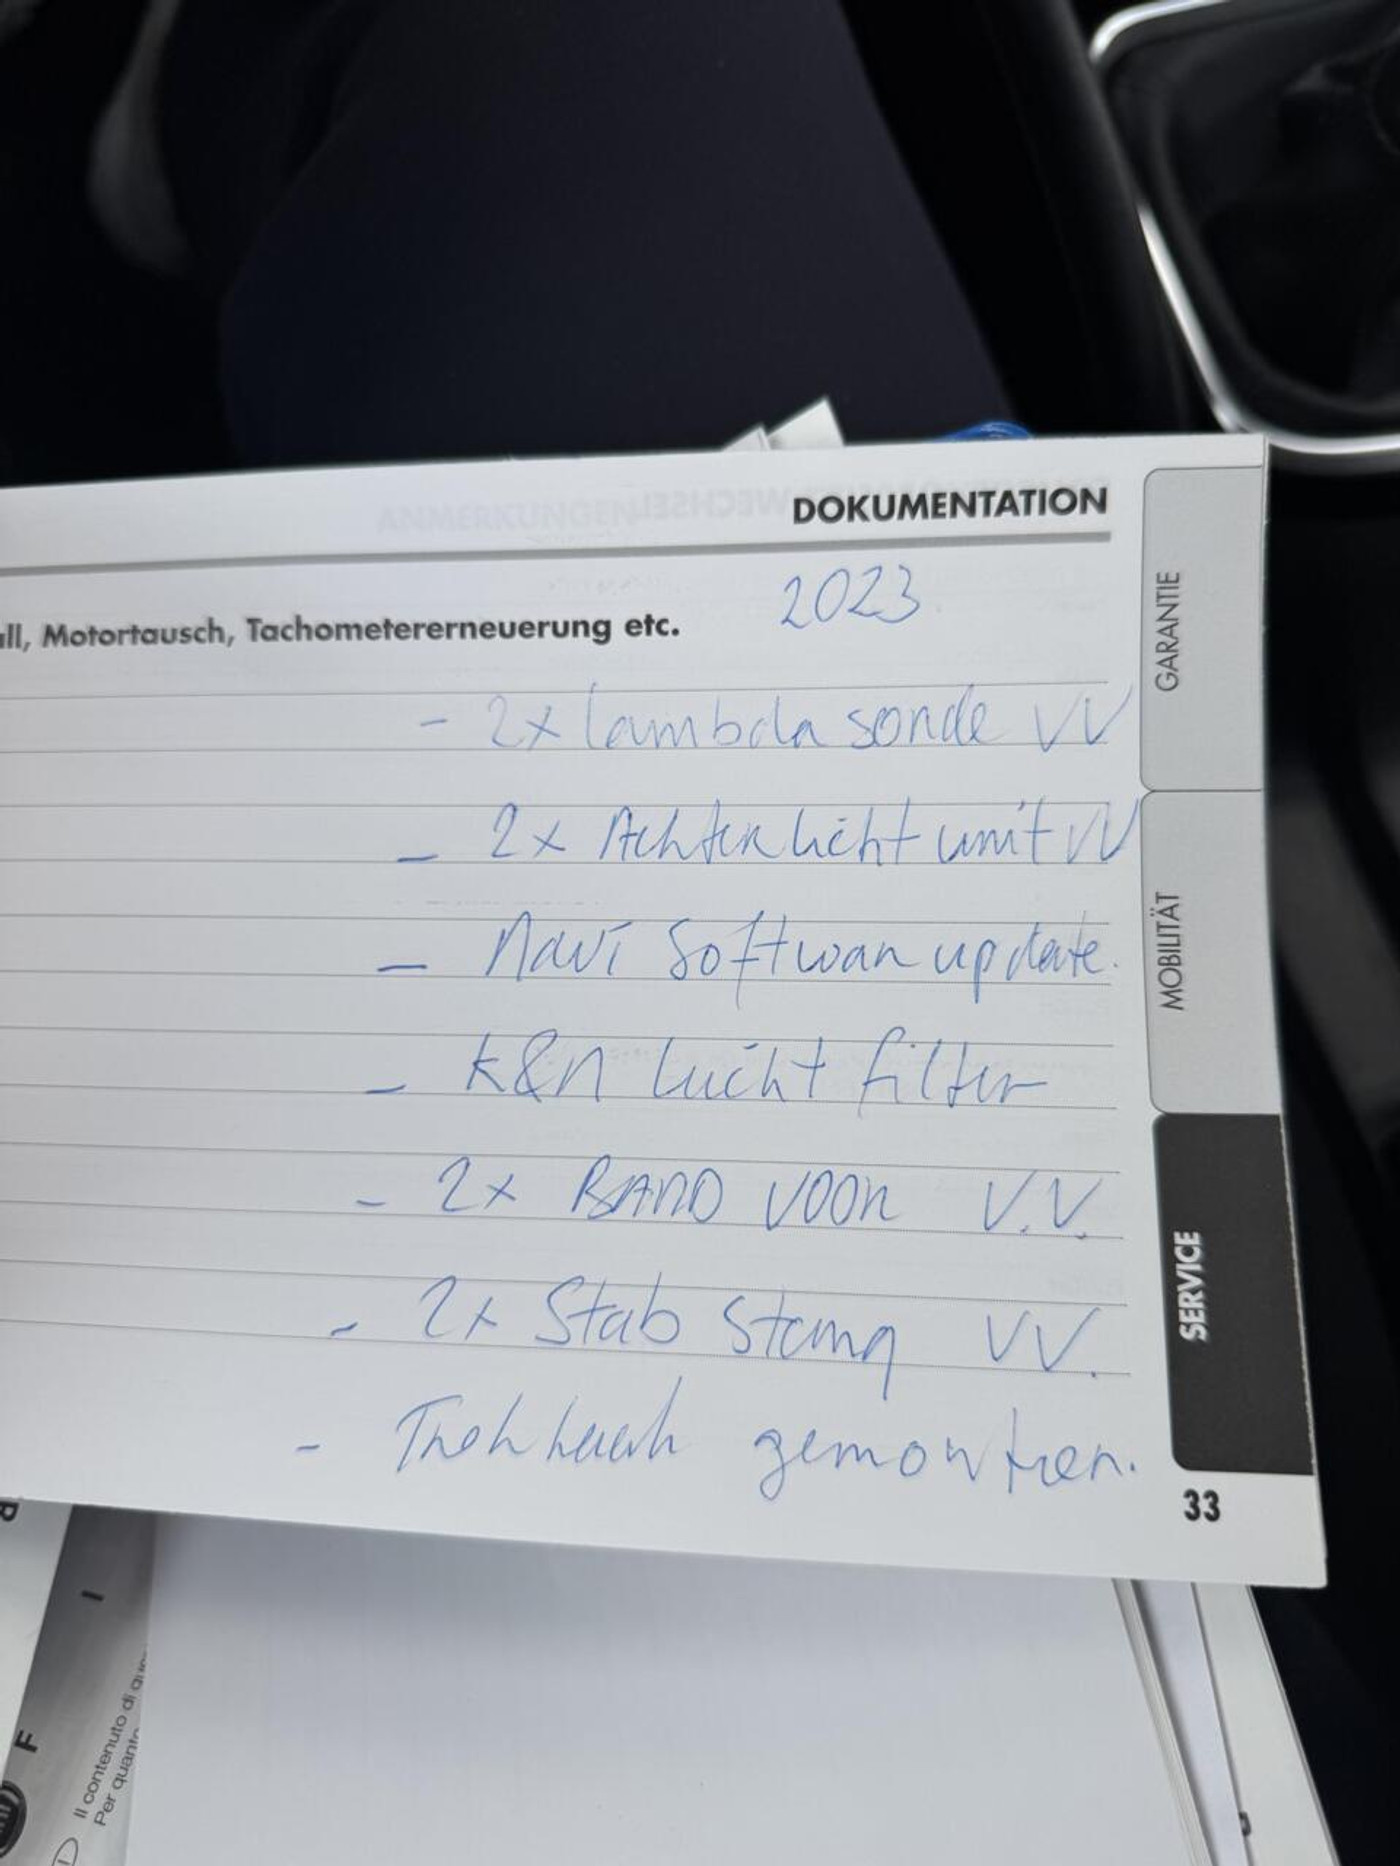 DOKUMENTATION
2023
all, Motortausch, Tachometererneuerung etc.
- 2x lambda sonde VV
- 2x Achterlicht unit VV
- Navi Softwar update.
- K&N lucht filter
- 2x BAND VOOR V.V.
- 2x Stab Stang VV.
- Trekhaak gemonteren.
GARANTIE
MOBILITÄT
SERVICE
33
I
F
Il contenuto di
Per quanto